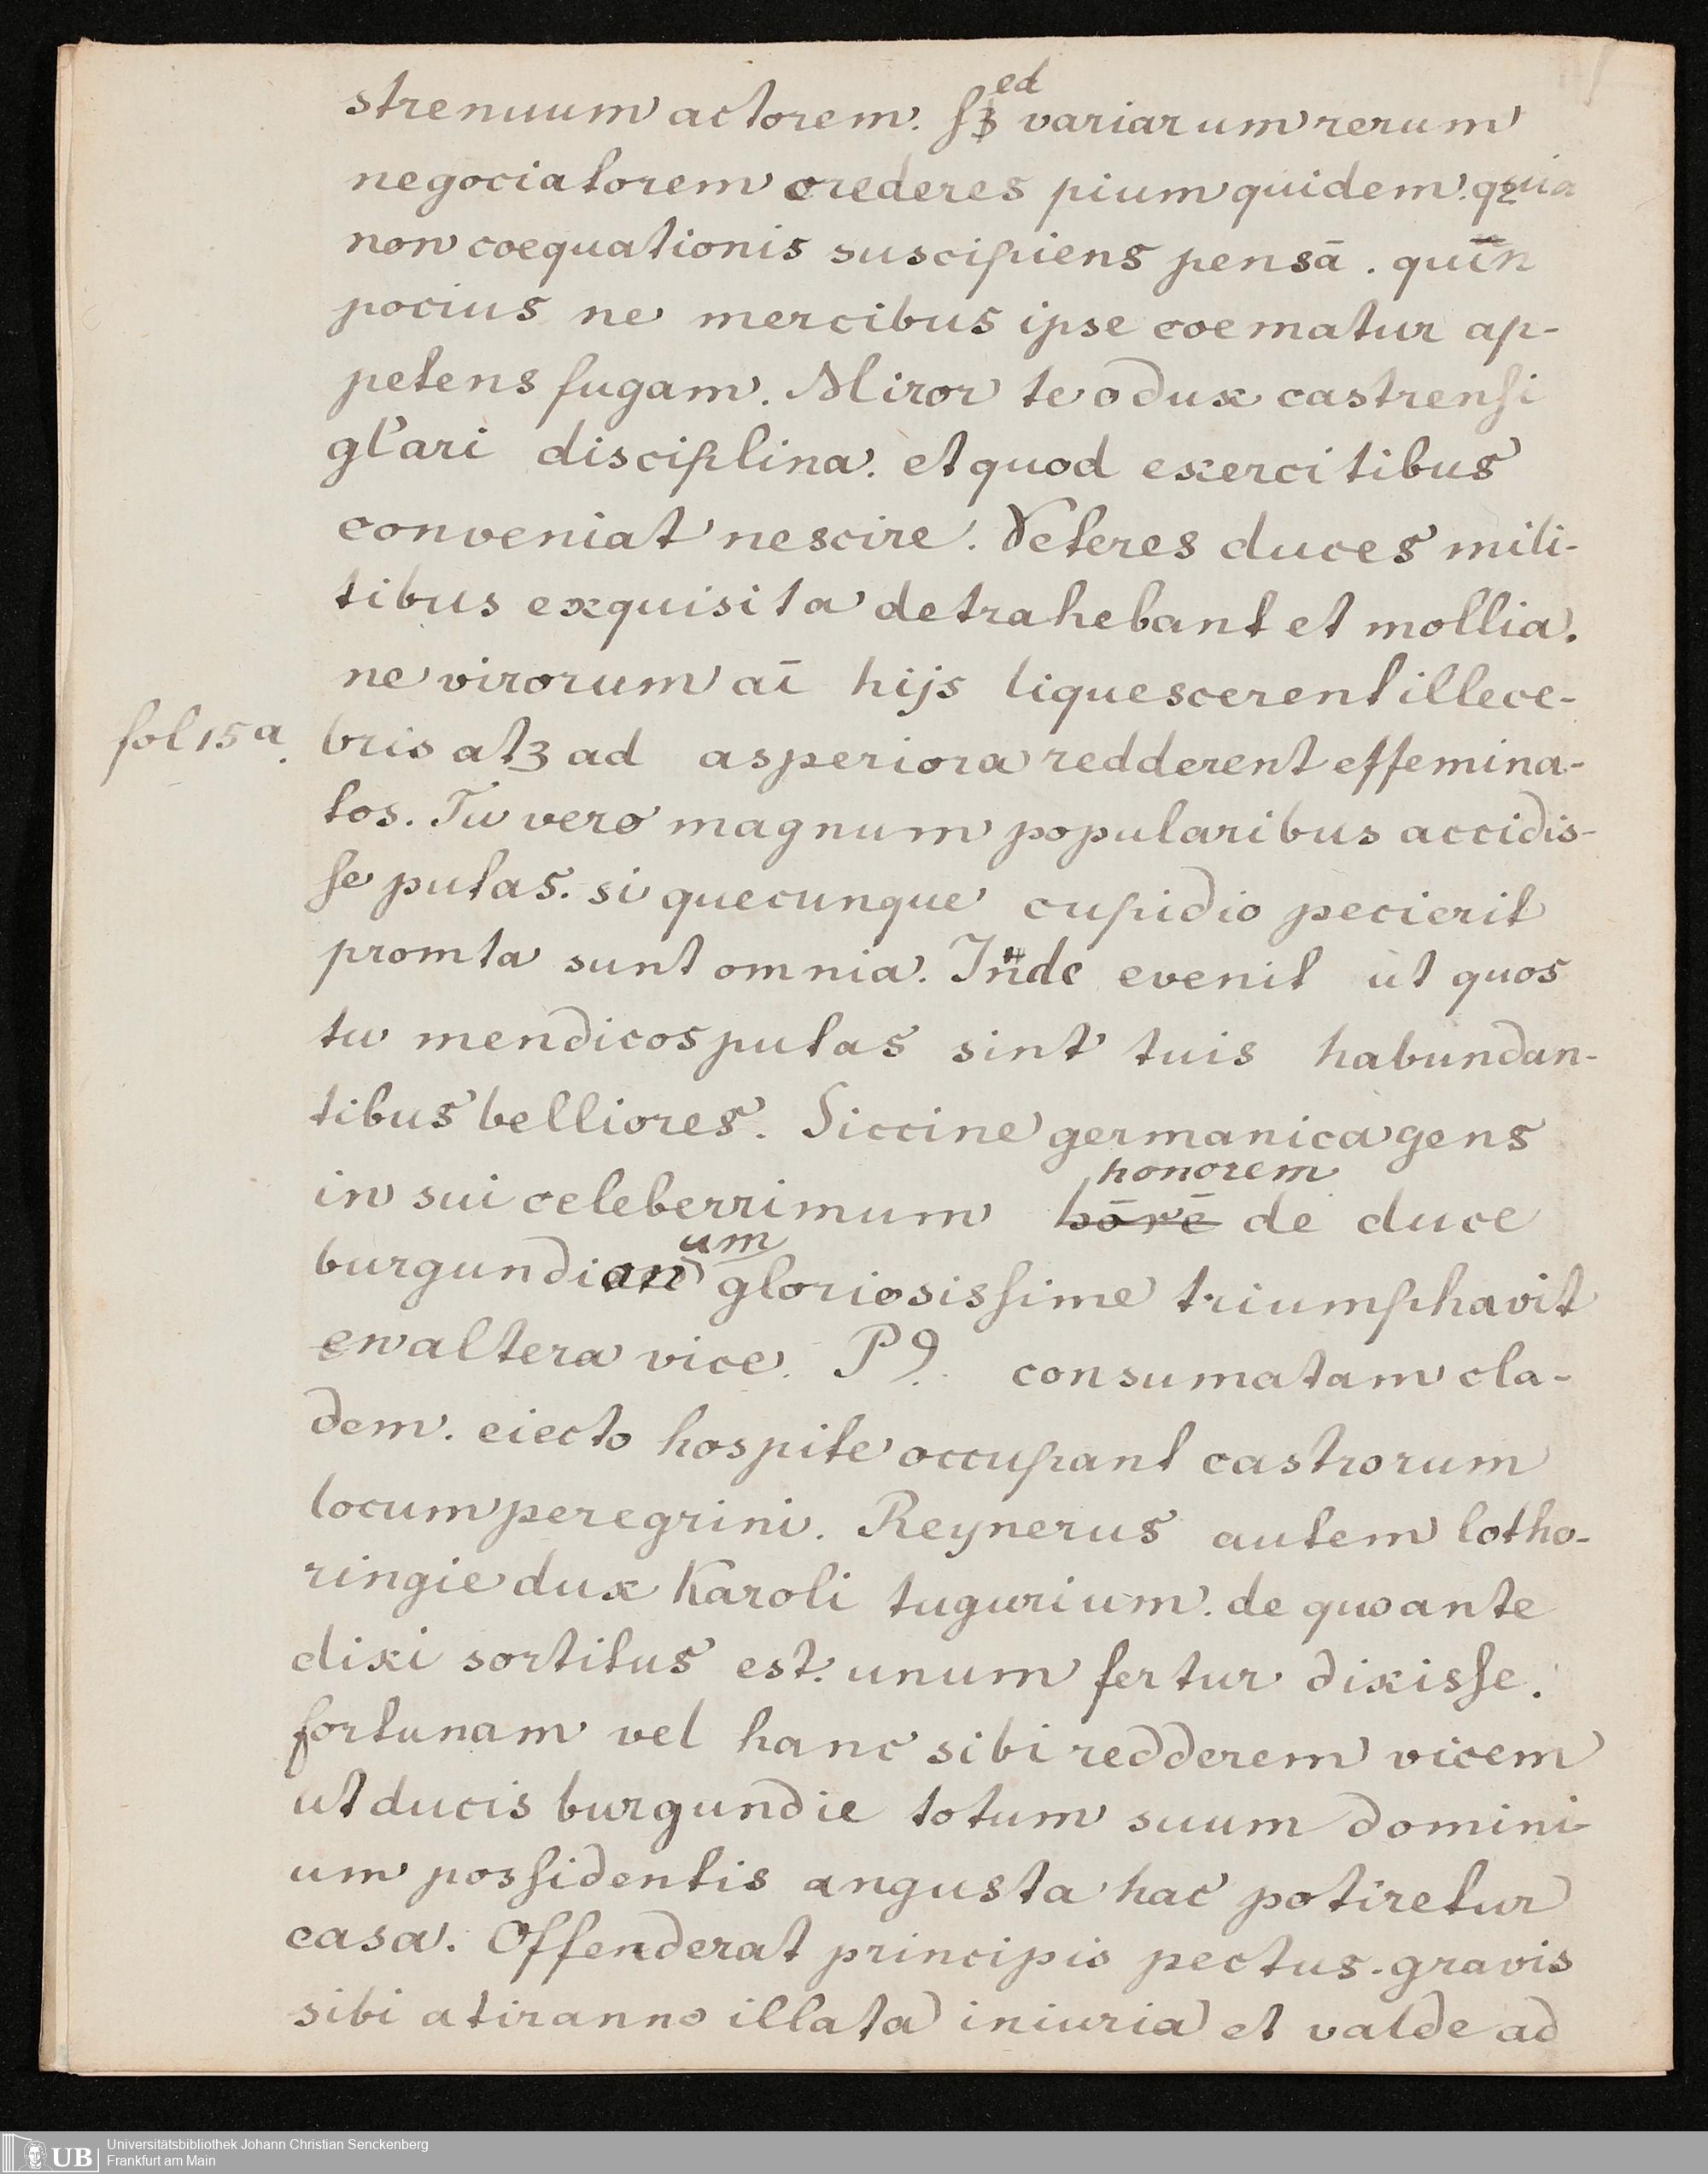 strenuum actorem. sed variarum rerum
negociatorem crederes pium quidem. quia
non coequationis suscipiens pensā. quin
pocius ne mercibus ipse coematur ap-
petens fugam. Miror te o dux castrensi
gl'ari disciplina. et quod exercitibus
conveniat nescire. Veteres duces mili-
tibus exquisita detrahebant et mollia.
ne virorum aī hijs liquescerent illece-
fol 15 a. bris atʒ ad asperiora redderent effemina-
tos. Tu vero magnum popularibus accidis-
se putas. si quecunque cupidio pecierit
promta sunt omnia. Inde evenit ut quos
tu mendicos putas sint tuis habundan-
tibus belliores. Siccine germanica gens
in sui celeberrimum hōrē honorem de duce
burgundianum gloriosissime triumphavit
en altera vice. P9. consumatam cla-
dem. eiecto hospite occupant castrorum
locum peregrini. Reynerus autem lotho-
ringie dux Karoli tugurium. de quo ante
dixi sortitus est. unum fertur dixisse.
fortunam vel hanc sibi redderem vicem
ut ducis burgundie totum suum domini-
um possidentis angusta hac potiretur
casa. Offenderat principis pectus. gravis
sibi a tiranno illata iniuria et valde ad
Universitätsbibliothek Johann Christian Senckenberg
UB Frankfurt am Main